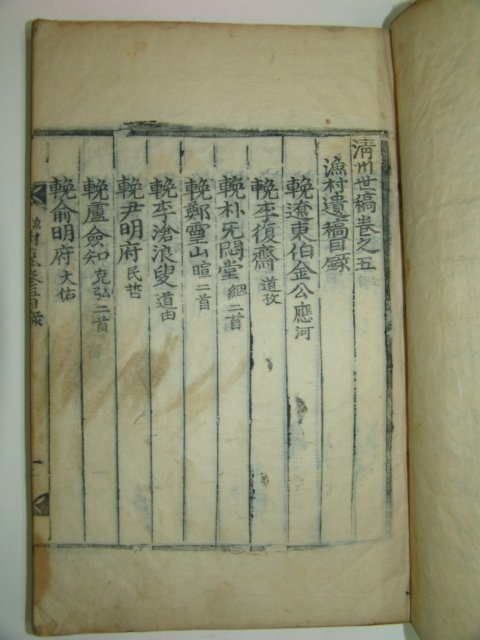 清州世稿卷之五
漁村遺稿目錄
輓遼東伯金公應河
輓李復齋道孜
輓朴无悶堂絪二首
輓鄭靈山暄二首
輓李滄浪叟道由
輓尹明府民哲
輓盧僉知克弘二首
輓俞明府大佑